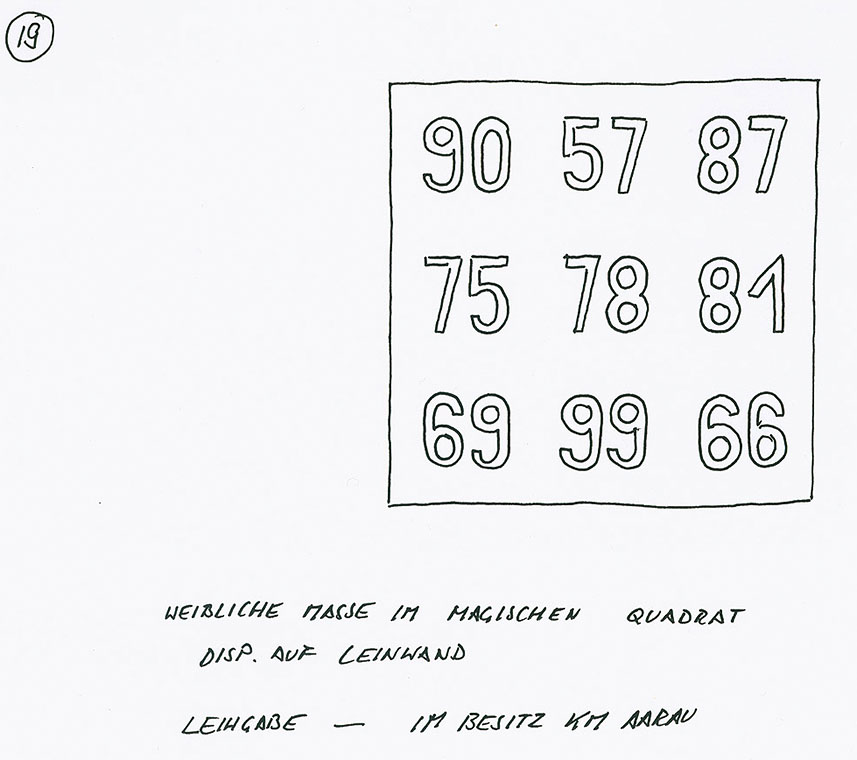 19
90 57 87
75 78 81
69 99 66
WEIBLICHE MASSE IM MAGISCHEN QUADRAT
DISP. AUF LEINWAND
LEIHGABE — IM BESITZ KM AARAU